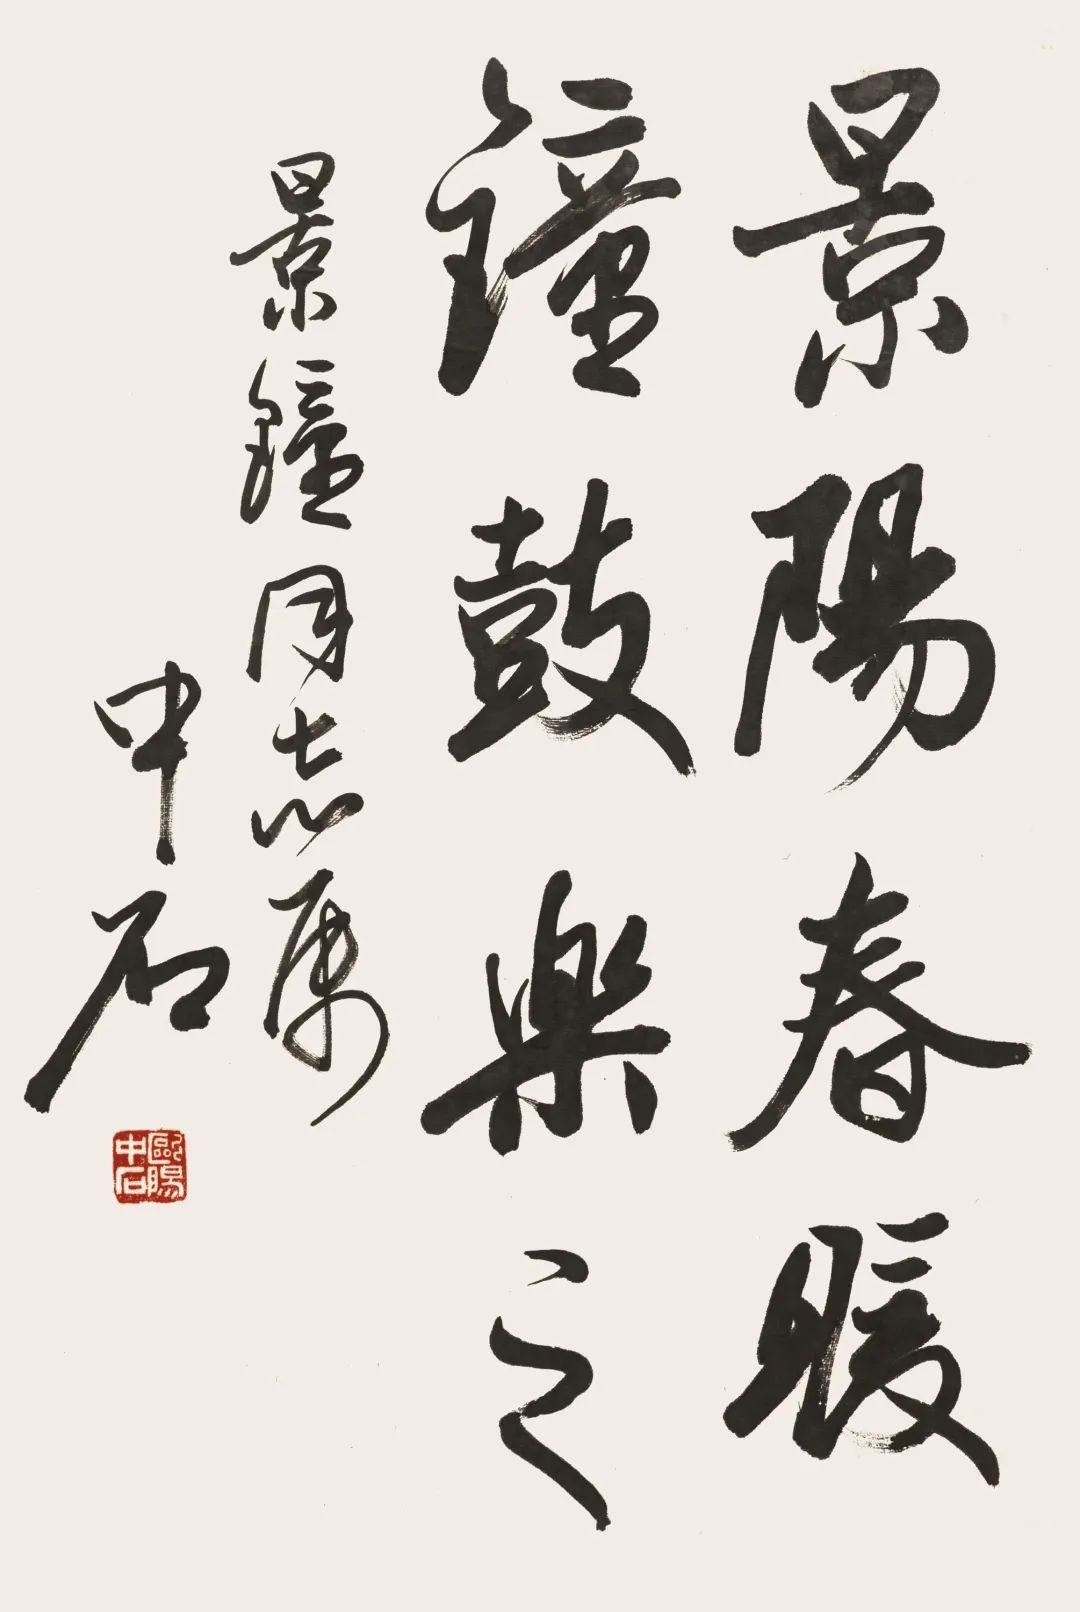 景陽春暖
鐘鼓樂之
景鐘同志属
中石
歐陽中石